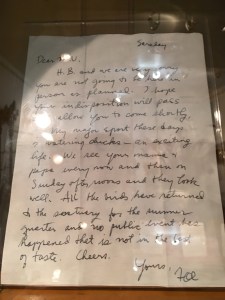 Sunday
Dear
H.B. and we are very sorry
you are not going to be here in
as planned. I hope
your indisposition will pass
allow you to come shortly.
major sport these days
watching chicks - an exciting
life. We see your mama &
papa every now and then on
Sunday afternoons and they look
well. All the birds have returned
& the sanctuary for the summer
quarter and no public event has
happened that is not in the best
of taste. Cheers.
Yours,